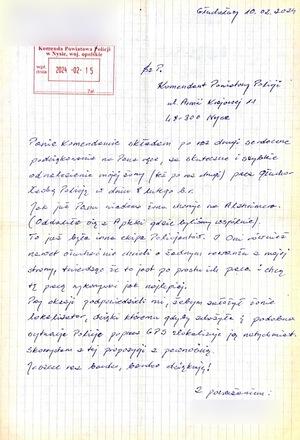 Głuchołazy 10.02.2024
Komenda Powiatowa Policji
w Nysie, woj. opolskie
wpł. dnia 2024 -02- 15
Sz. P.
Komendant Powiatowy Policji
ul. Armii Krajowej 11
48-300 Nysa
Panie Komendancie składam po raz drugi serdeczne
podziękowania na Pana ręce, za skuteczne i szybkie
odnalezienie mojej żony (też po raz drugi) przez Głucho-
łaską Policję w dniu 8 lutego b.r.
Jak już Panu wiadomo żona choruje na Alzheimera.
(Oddaliła się z Apteki gdzie byliśmy wspólnie).
To już była inna ekipa Policjantów. I Oni również
nawet słuchać nie chcieli o żadnym rewanżu z mojej
strony, twierdząc że to jest po prostu ich praca i chcą
tę pracę wykonywać jak najlepiej.
Przy okazji podpowiedzieli mi, żebym założył żonie
lokalizator, dzięki któremu gdyby zdarzyła się podobna
sytuacja Policja poprzez GPS zlokalizuje ją natychmiast.
Skorzystam z tej propozycji z pewnością.
Jeszcze raz bardzo, bardzo dziękuję!
Z poważaniem: